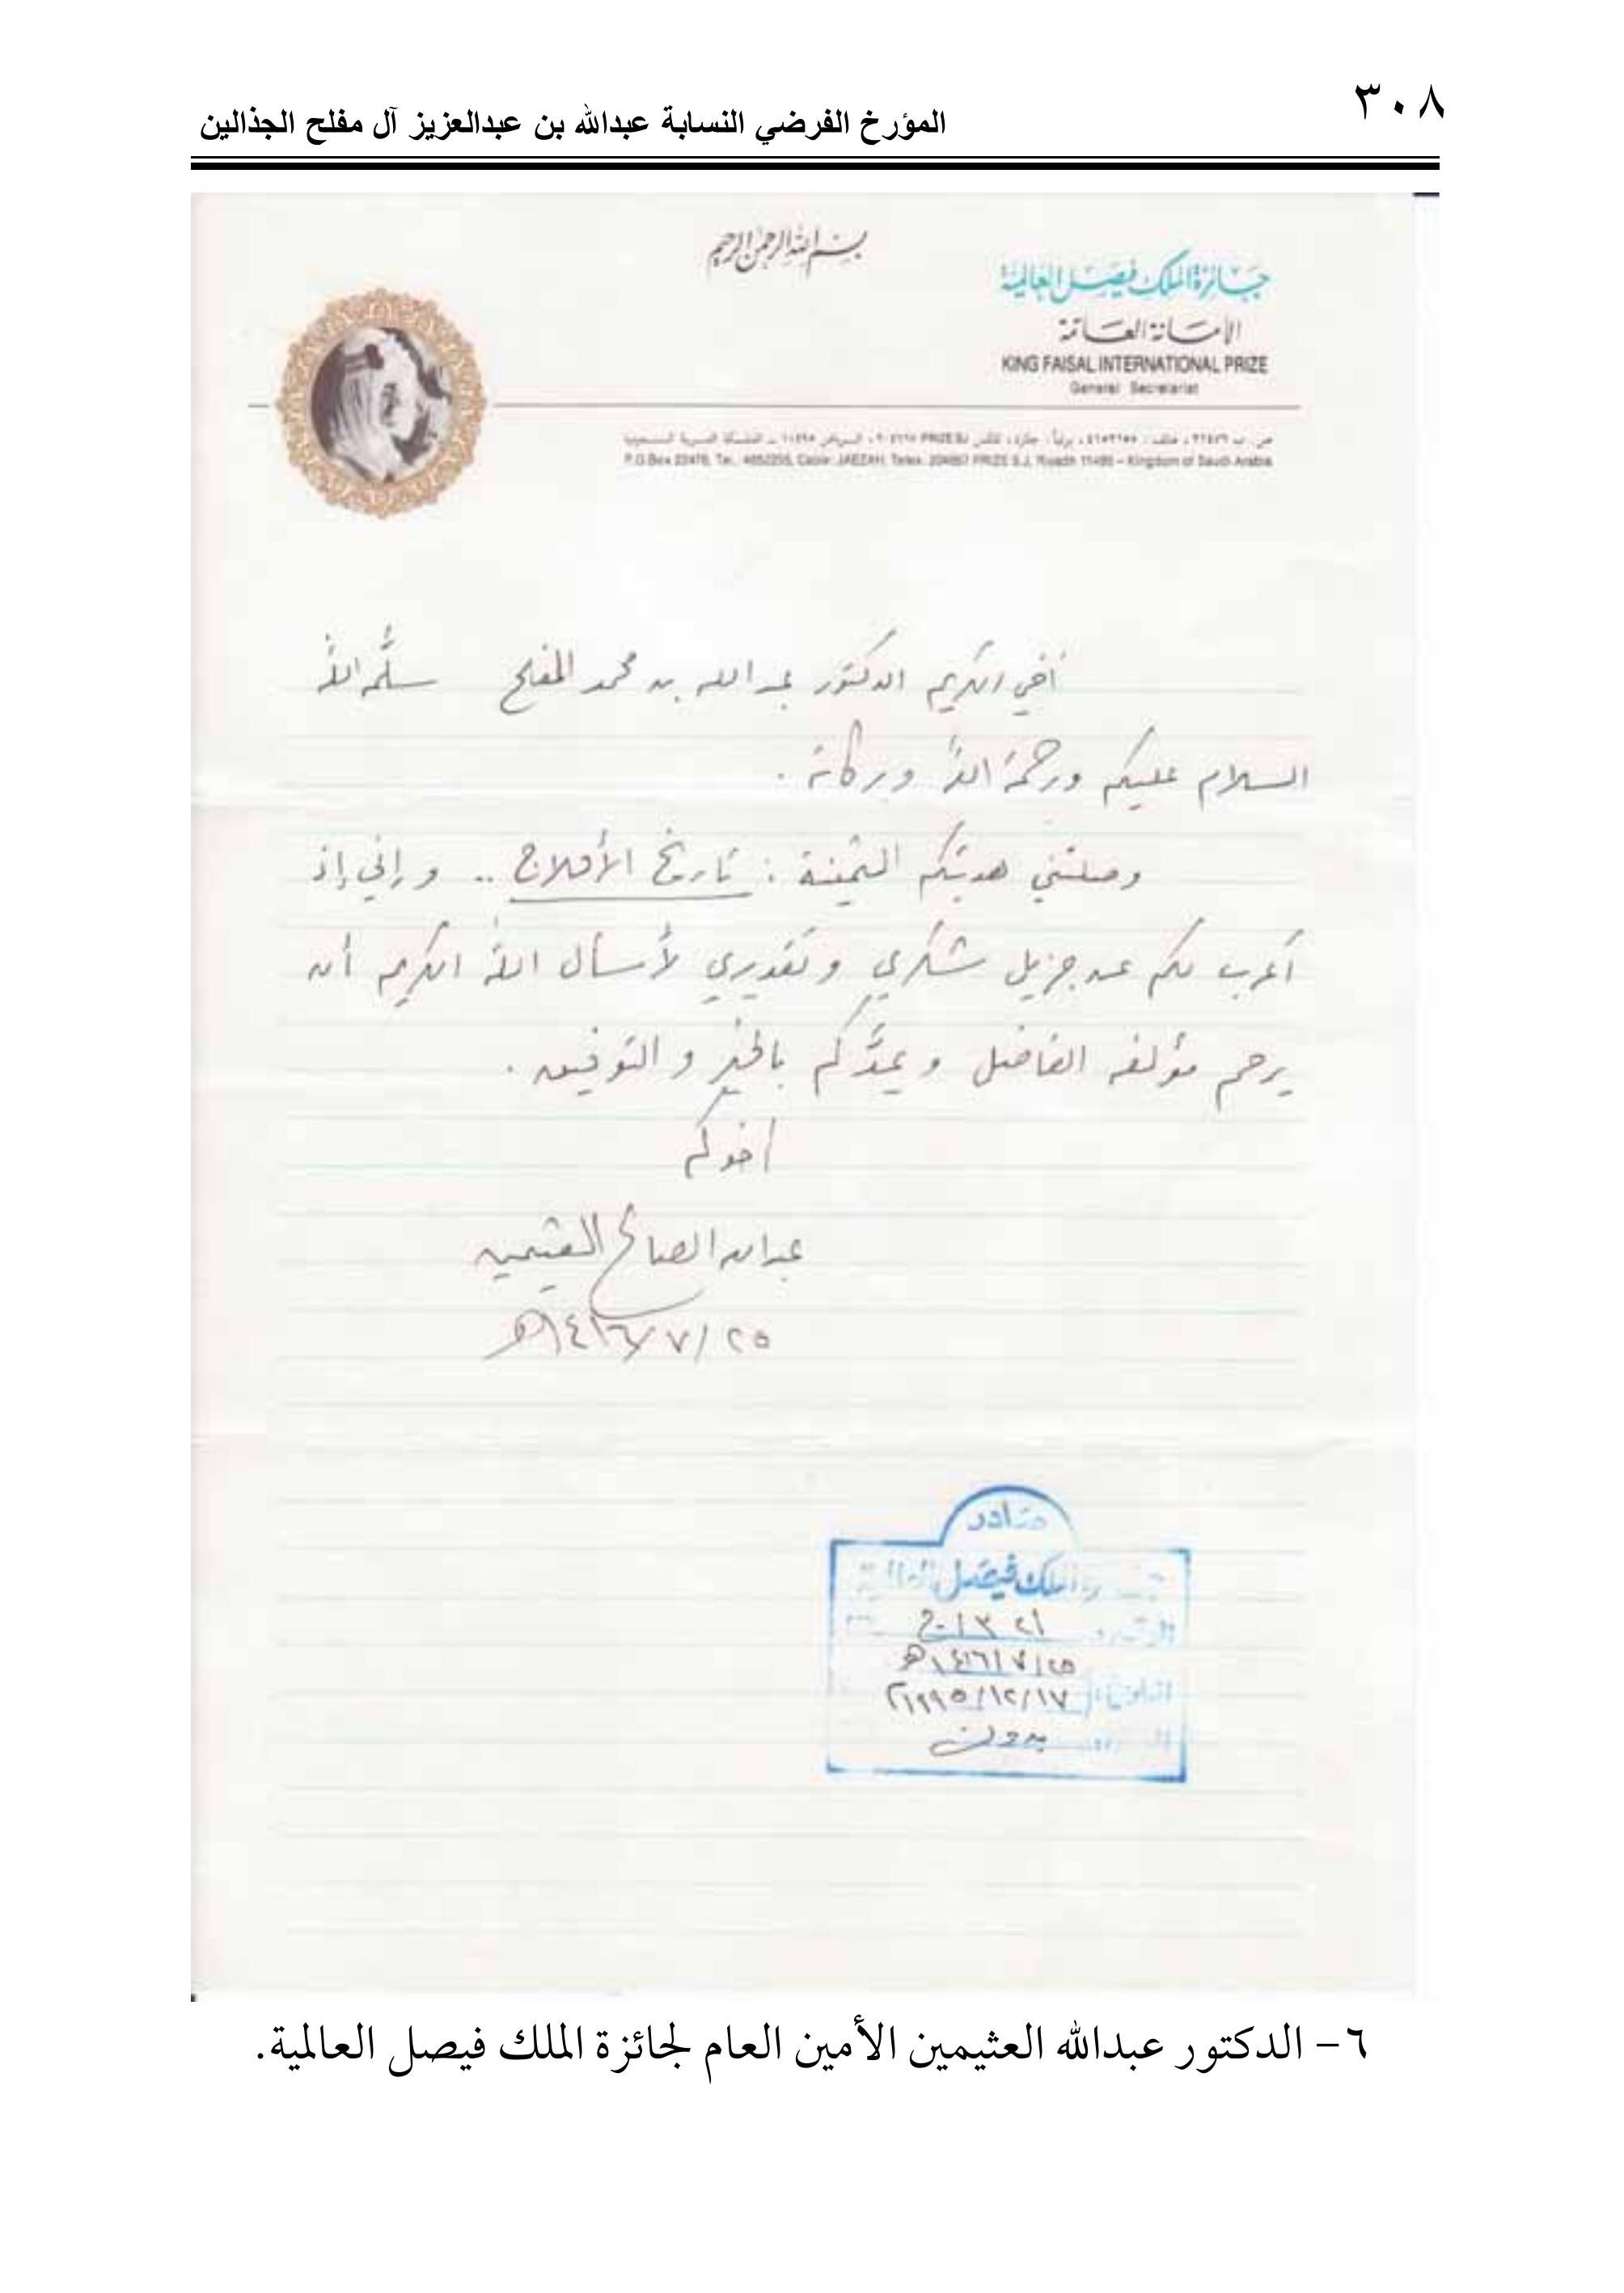 ٣٠٨
المؤرخ الفرضي النسابة عبدالله بن عبدالعزيز آل مفلح الجذالين
بسم الله الرحمن الرحيم
جائزة الملك فيصل العالمية
الأمانة العامة
KING FAISAL INTERNATIONAL PRIZE
General Secretariat
P.O.Box 22476, Tel.: 4652255, Cable: JAEZAH, Telex: 204667 PRIZE S.J. Riyadh 11495 – Kingdom of Saudi Arabia
أخي الكريم الدكتور عبدالله بن محمد المفلح سلَّمه الله
السلام عليكم ورحمة الله وبركاته .
وصلتني هديتكم الثمينة : تاريخ الأفلاج .. وإني إذ
أعرب لكم عن جزيل شكري وتقديري لأسأل الله الكريم أن
يرحم مؤلفه الفاضل ويمدَّكم بالخير والتوفيق .
أخوكم
عبدالله الصالح العثيمين
٢٥/٧/١٤١٦هـ
صادر
جائزة الملك فيصل العالمية
٢٥/٧/١٤١٦هـ
التاريخ ١٧/١٢/١٩٩٥م
بدون
٦- الدكتور عبدالله العثيمين الأمين العام لجائزة الملك فيصل العالمية.